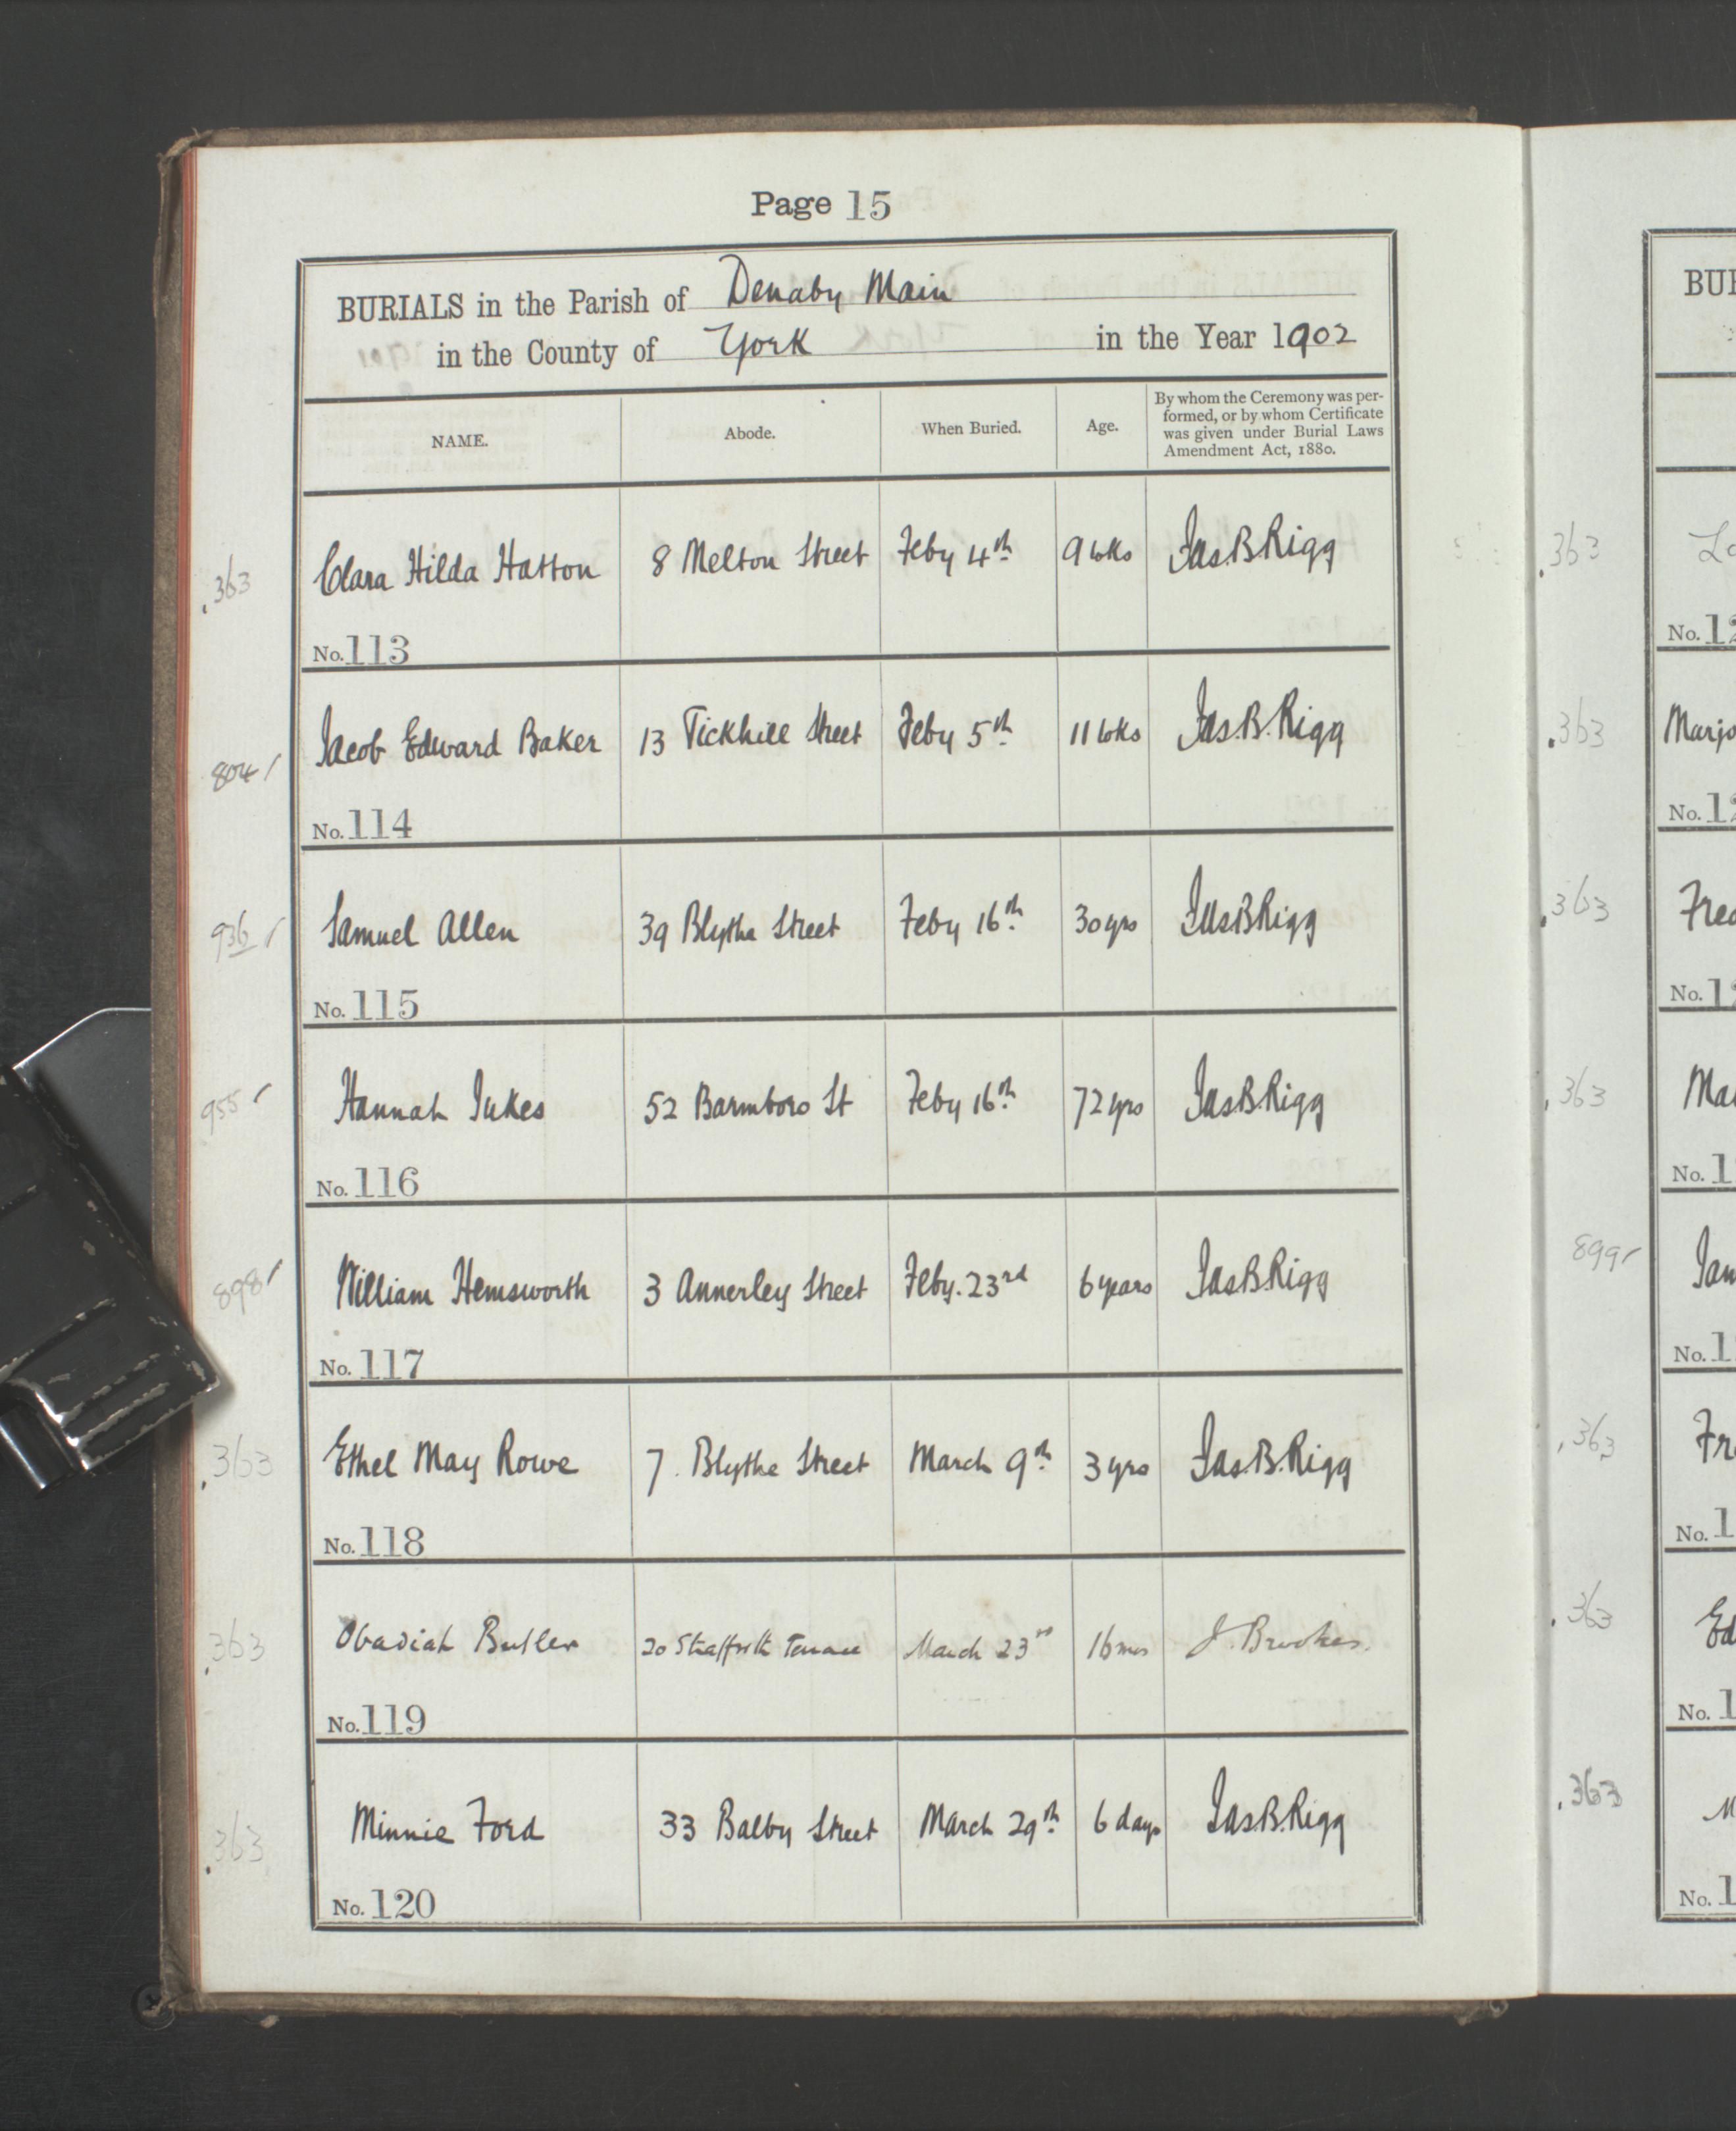 Page 15
BURIALS in the Parish of Denaby Main
in the County of York in the Year 1902
NAME. Abode. When Buried. Age. By whom the Ceremony was per-
formed, or by whom Certificate
was given under Burial Laws
Amendment Act, 1880.
.363 Clara Hilda Hatton 8 Melton Street Feby 4th 9 wks Jas.B.Rigg
No. 113
804/ Jacob Edward Baker 13 Tickhill Street Feby 5th 11 wks Jas.B.Rigg
No. 114
936 / Samuel Allen 39 Blythe Street Feby 16th 30 yrs Jas.B.Rigg
No. 115
955 / Hannah Jukes 52 Barmboro St Feby 16th 72 yrs Jas.B.Rigg
No. 116
898 / William Hemsworth 3 Annerley Street Feby. 23rd 6 years Jas.B.Rigg
No. 117
.363 Ethel May Rowe 7. Blythe Street March 9th 3 yrs Jas.B.Rigg
No. 118
.363 Obadiah Butler 20 Terrace March 23rd 16 mos J. Brookes.
No. 119
.363 Minnie Ford 33 Balby Street March 29th 6 days Jas.B.Rigg
No. 120
BUR
.363
No. 12
.363 Marjo
No. 12
.363 Fred
No. 12
.363 Mar
No. 1
899/ Jam
No. 1
.363 Fr
No. 1
.363 Ed
No. 1
.363 M
No. 1